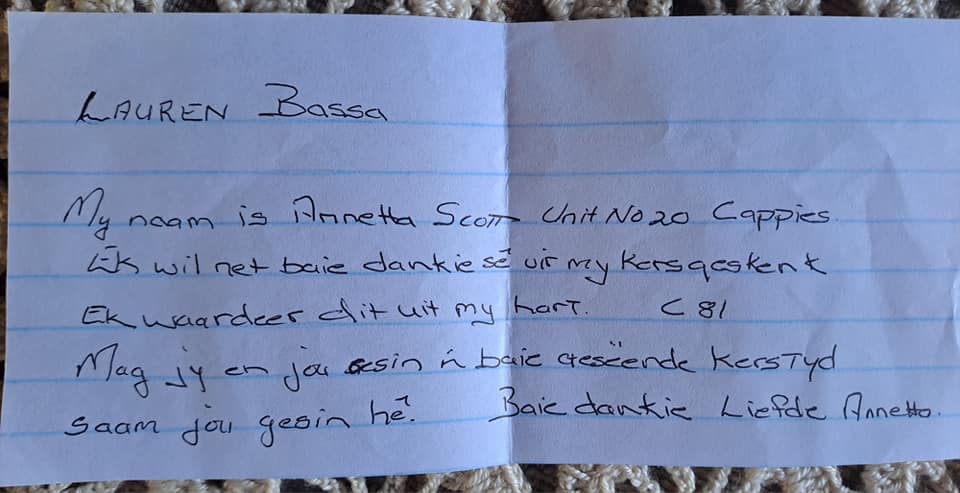 LAUREN Bassa
My naam is Annetta Scott Unit No 20 Cappies.
Ek wil net baie dankie sê vir my Kersgeskenk
Ek waardeer dit uit my hart. C 81
Mag jy en jou gesin 'n baie Geseënde Kerstyd
saam jou gesin hê. Baie dankie Liefde Annetta.